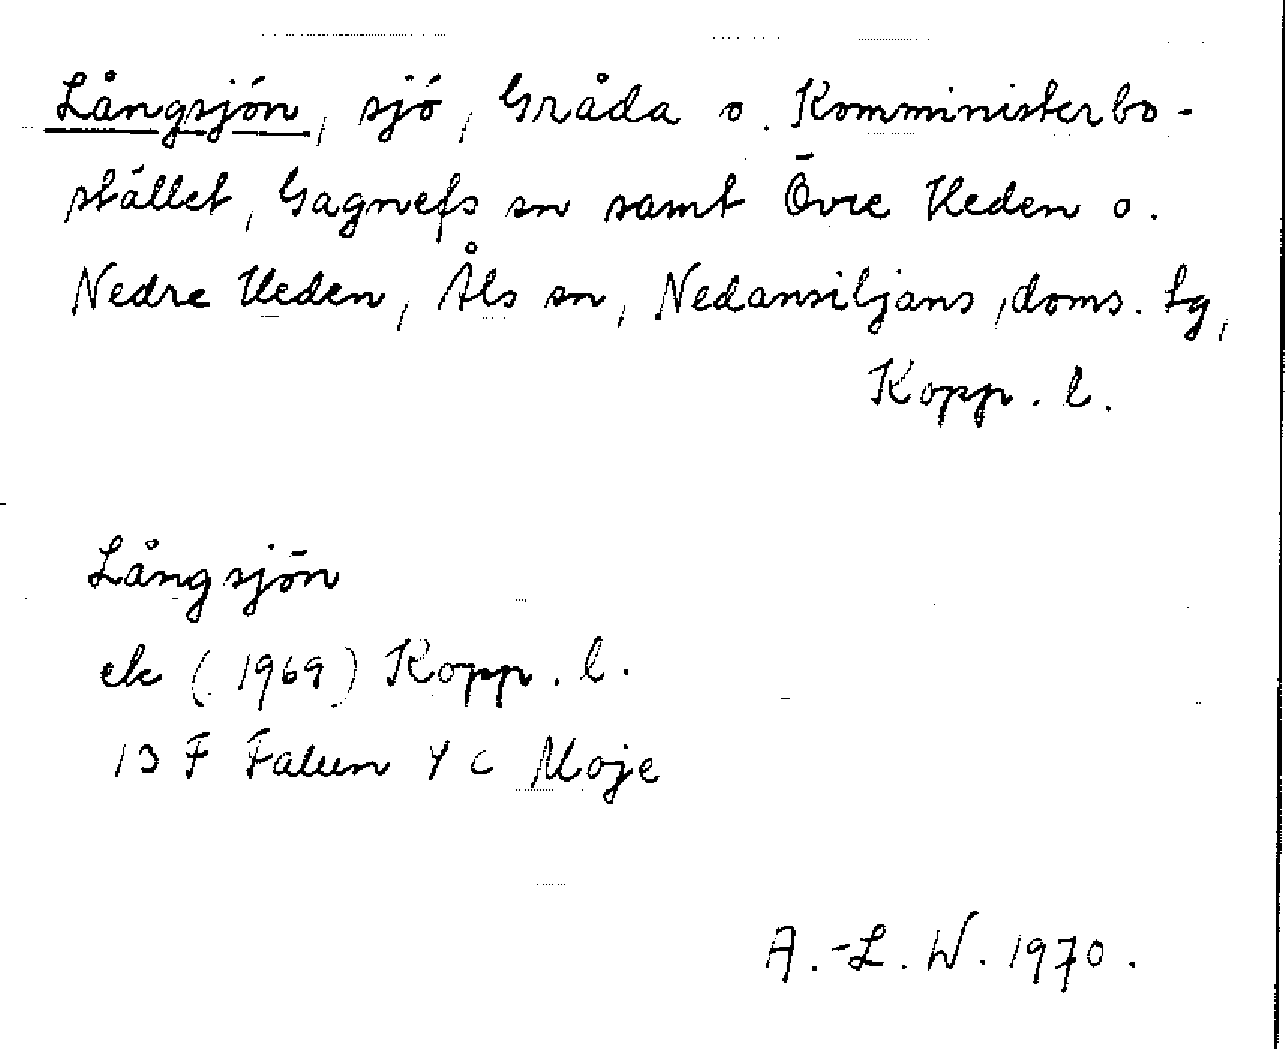 Långsjön, sjö, Gråda o. Komministerbo-
stället, Gagnefs sn samt Övre Heden o.
Nedre Heden, Åls sn, Nedansiljans, doms. lg,
Kopp. l.
Långsjön
ek (1969) Kopp. l.
13 F Falun Y c Moje
A.-L. W. 1970.